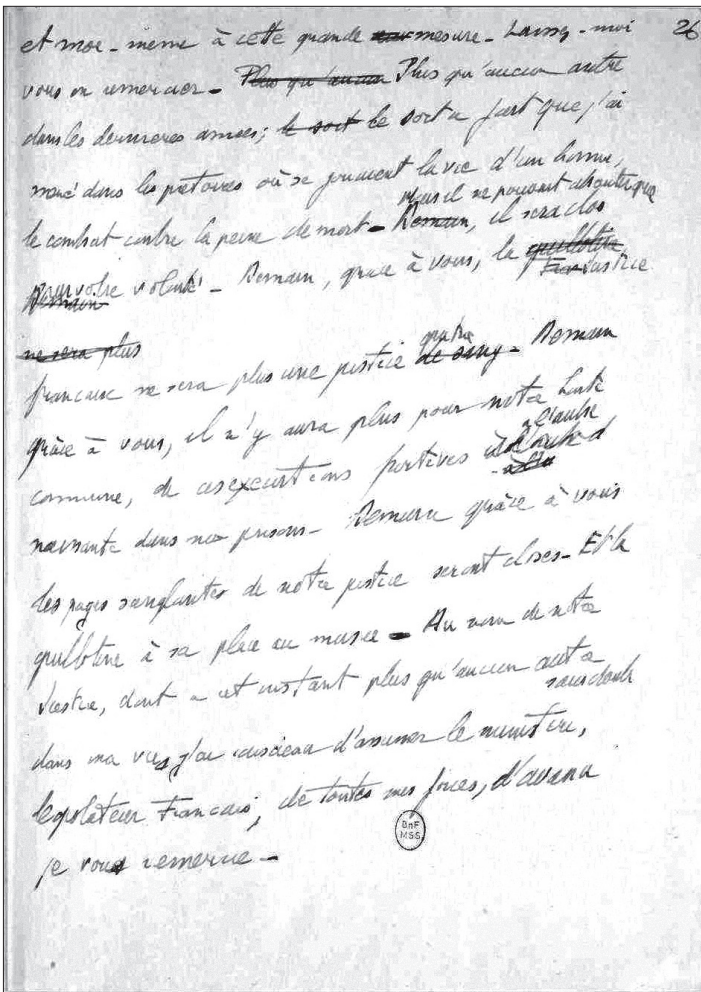 26
et moi-même à cette grande mesure - Laissez-moi
vous en remercier - Plus qu'aucun Plus qu'aucun autre
dans les dernières années; le sort le sort a fait que j'ai
mené dans les prétoires où se jouaient la vie d'un homme,
mais il ne pouvait
le combat contre la peine de mort - Demain, il sera clos
Par votre volonté - Demain, grâce à vous, la guillotine
Demain Justice
ne sera plus
française ne sera plus une justice de sang - Demain
grâce à vous, il n'y aura plus pour notre honte
à l'aube
commune, de ces exécutions furtives
dans nos prisons - Demain grâce à vous
les pages sanglantes de notre justice seront closes - Et la
guillotine à sa place au musée - Au nom de notre
Justice, dont à cet instant plus qu'aucun autre
sans doute
dans ma vie, j'ai conscience d'assumer le ministère,
législateur Français, de toutes mes forces, d'avance
je vous remercie -
BnF
MSS